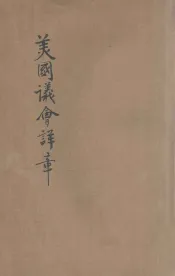 美國議會詳章